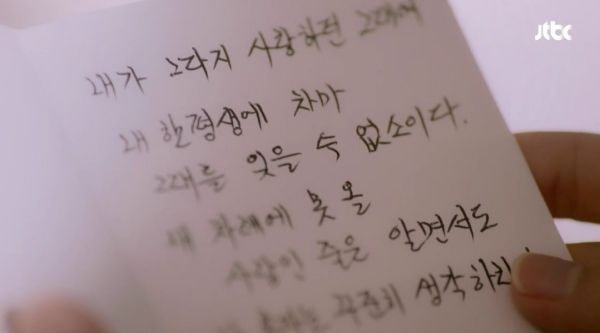 jtbc
내가 그다지 사랑하던 그대여
내 한평생에 차마
그대를 잊을 수 없소이다.
내 차례에 못 올
사랑인 줄은 알면서도
꾸준히 생각하리